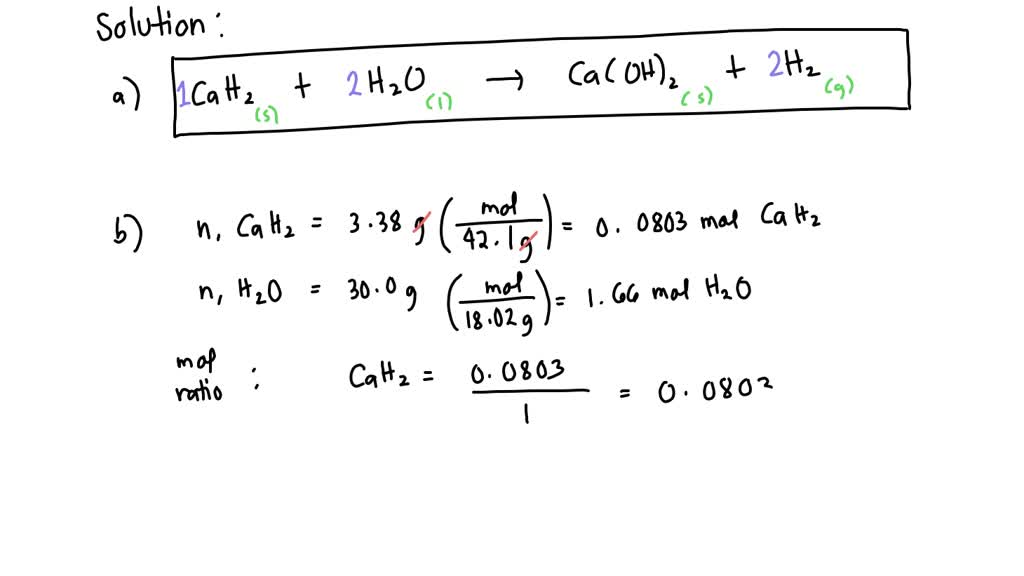 Solution:
a) 1CaH₂(s) + 2H₂O(l) → Ca(OH)₂(s) + 2H₂(g)
b) n, CaH₂ = 3.38 g (mol / 42.1g) = 0.0803 mol CaH₂
n, H₂O = 30.0 g (mol / 18.02g) = 1.66 mol H₂O
mol ratio : CaH₂ = 0.0803 / 1 = 0.0802